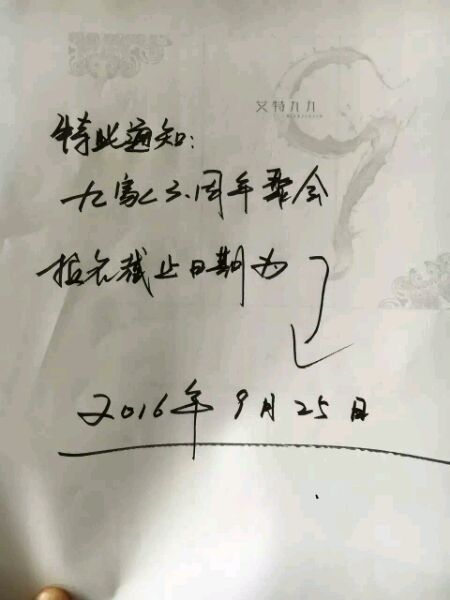 艾特九九
特此通知:
九寓〈3.周年聚会
报名截止日期为
2016年9月25日